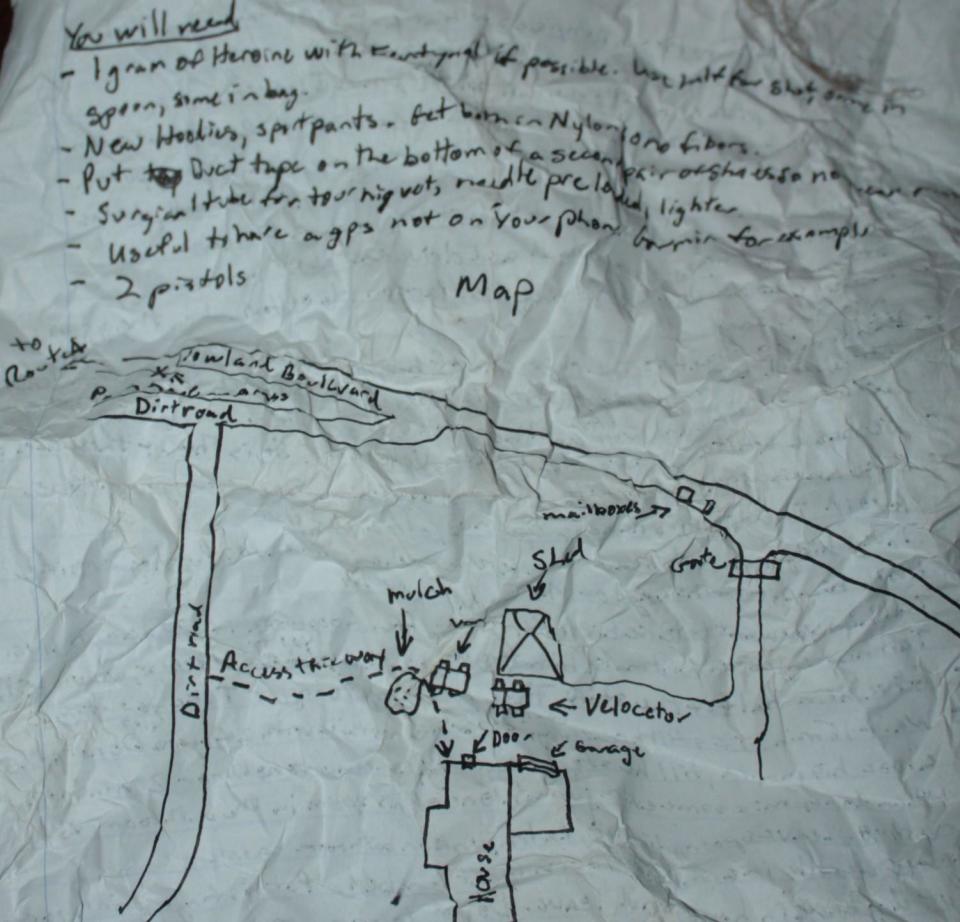 You will need
- 1 gram of Heroine with if possible. Use half for shot, some in
spoon, some in bag.
- New Hoodies, sport pants. Get both in Nylon/no fibers.
- Put Duct tape on the bottom of a second pair of shoes so no
- Surgical tube for tourniquet, needle pre loaded, lighter
- Useful to have a gps not on your phone Garmin for example
- 2 pistols
Map
to
Route
Rowland Boulevard
Dirt road
mailboxes
Gate
Shed
mulch
Access this way
Dirt road
Velocetor
Door
Garage
House